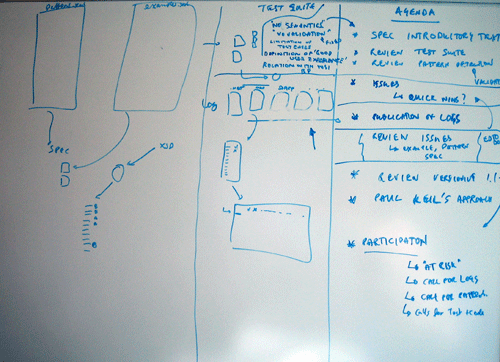 SPEC
XSD
TEST SUITE
NO SEMANTICS
VALIDATION"
LIMITATION
TEST CASES
DEFINITION OF "GOOD
USER EXPERIENCE"
RELATION WITH TEST
LOG
AGENDA
* SPEC INTRODUCTORY TEXT
* REVIEW TEST SUITE
* REVIEW PATTERN
VALIDAT
* ISSUES
↳ QUICK WINS?
* PUBLICATION OF LOGS
REVIEW ISSUES
↳ EXAMPLE, PATTERN
SPEC
* REVIEW VERSIONING 1.1
* PAUL KEIL'S APPROACH
* PARTICIPATON
↳ "AT RISK"
↳ CALL FOR LOGS
↳ CALL FOR PATTERN
↳ Calls for Test